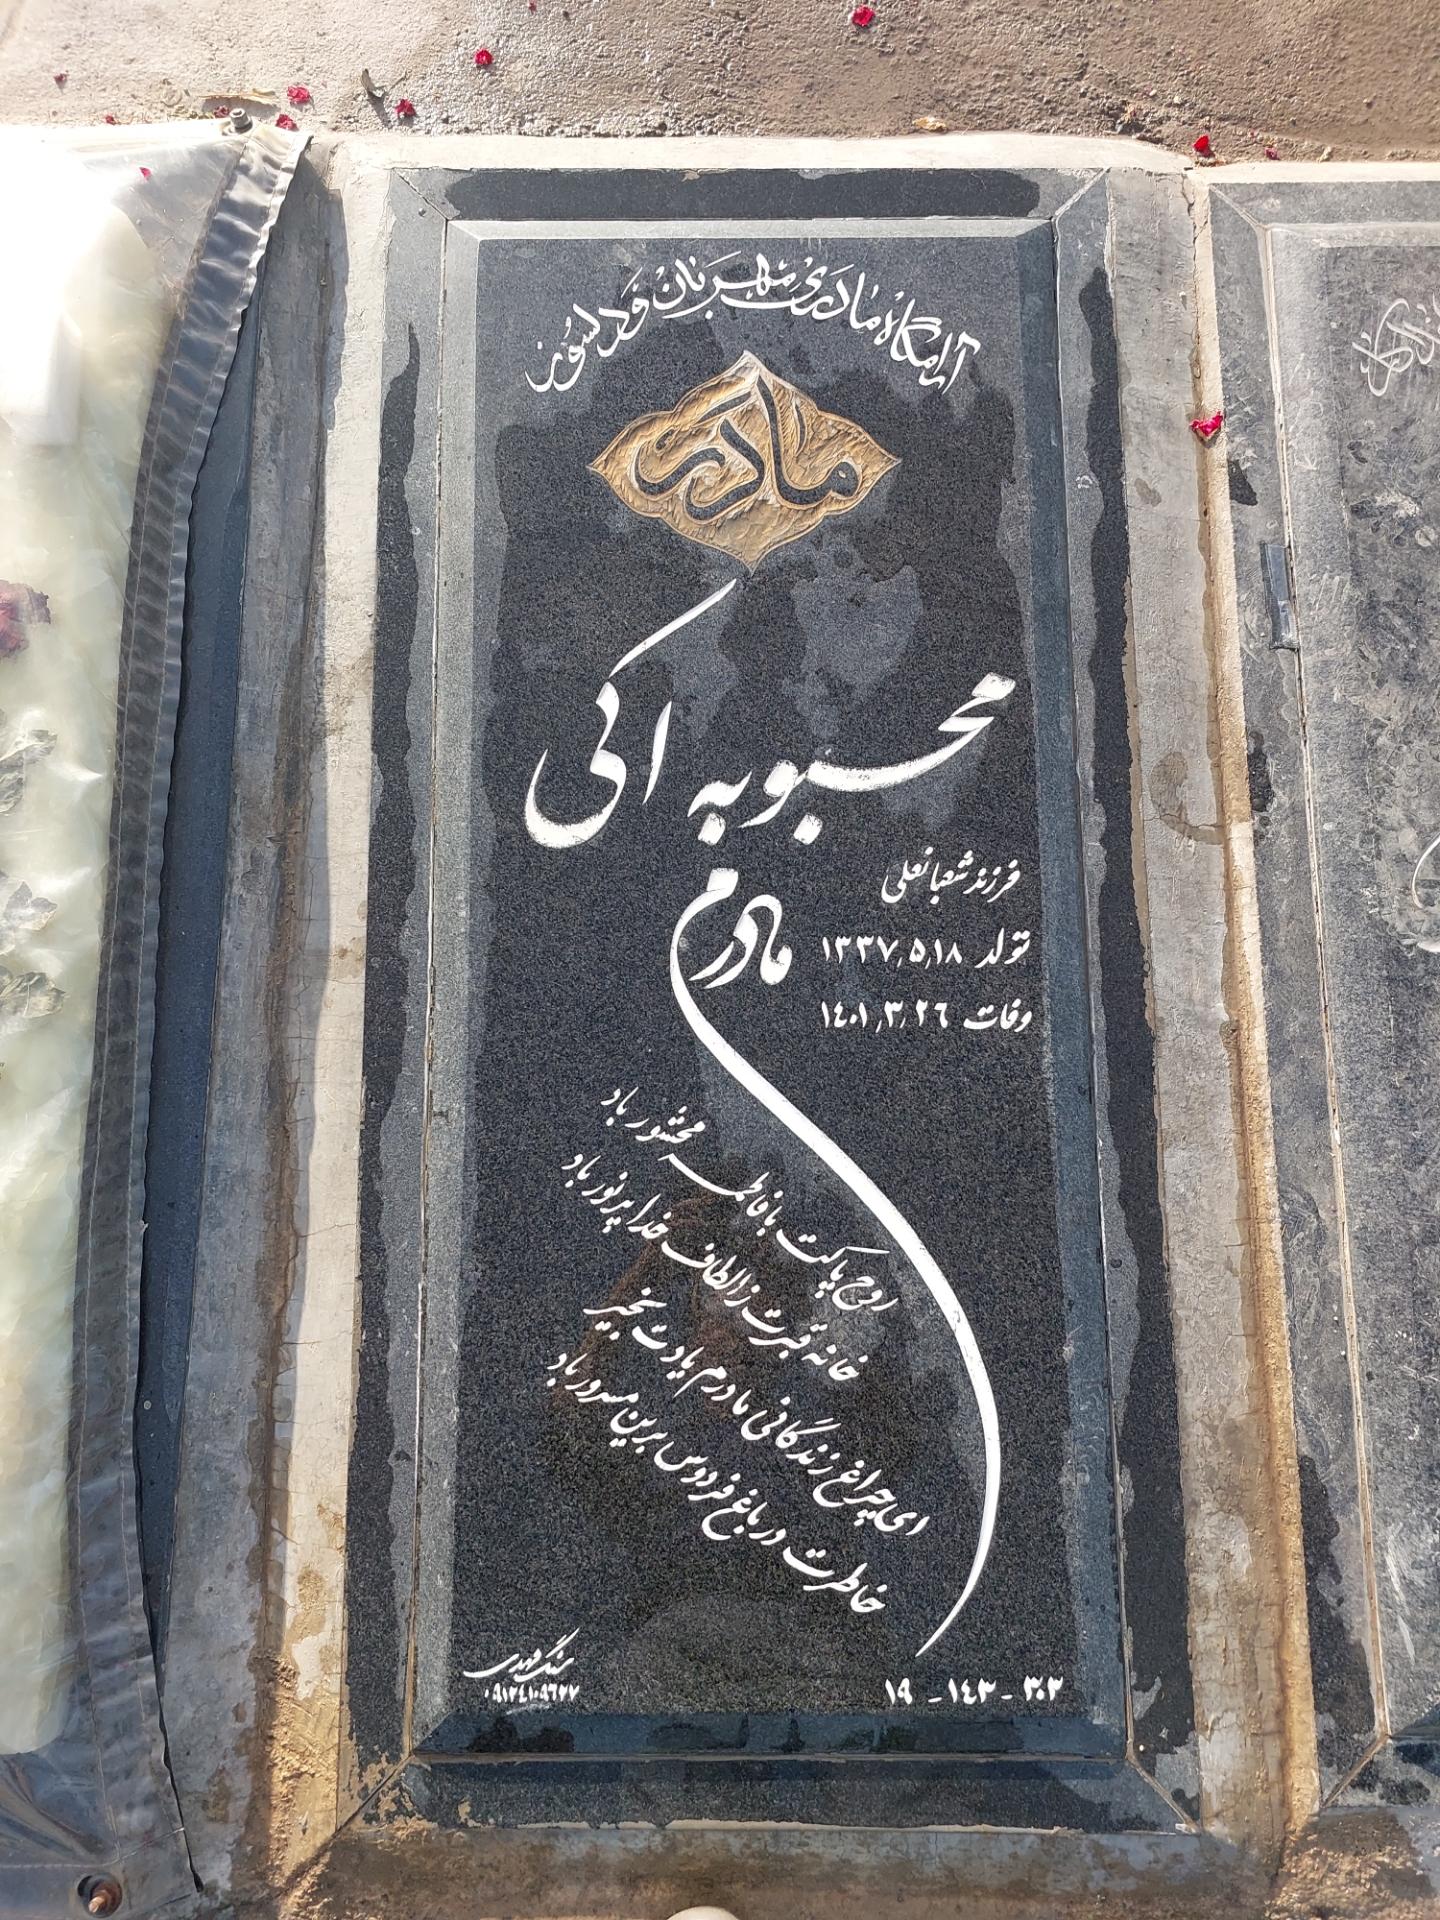 آرامگاه مادری مهربان و دلسوز
مادر
محبوبه اکی
فرزند شعبانعلی
تولد ۱۳۳۷٫۵٫۱۸
وفات ۱٤۰۱٫۳٫۲٦
مادرم
روح پاکت با فاطمه محشور باد
خانه قبرت ز الطاف خدا پر نور باد
ای چراغ زندگانی مادرم یادت بخیر
خاطرت در باغ فردوس برین مسرور باد
سنگ مهدی
۰۹۱۲٤۱۰۹٦۲۷
۳۰۳ - ۱٤۳ - ۱۹